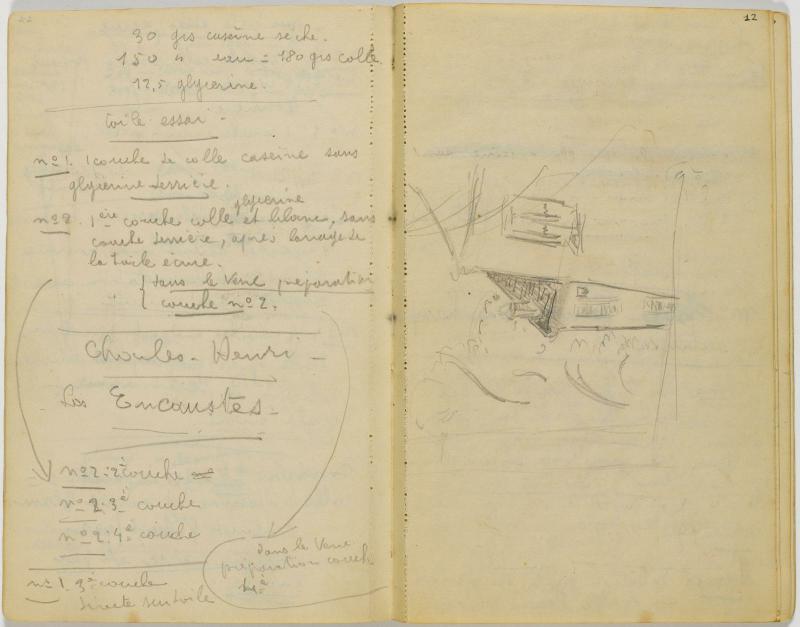 22
30 grs caseïne sèche.
150 " eau = 180 grs colle.
12,5 glycerine.
toile essai -
nº 1. 1 couche de colle caseine sans
glycérine derrière.
glycerine
nº 2. 1ère couche colle et blanc, sans
couche derrière, après lavage de
la toile écrue.
dans le Verre préparation
couche nº 2.
Charles-Henri -
Les Encaustes -
nº 2: 2è couche
nº 2. 3è couche
nº 2: 4è couche
dans le Verre
préparation couche
nº 1. 3è couche
directe sur toile
12